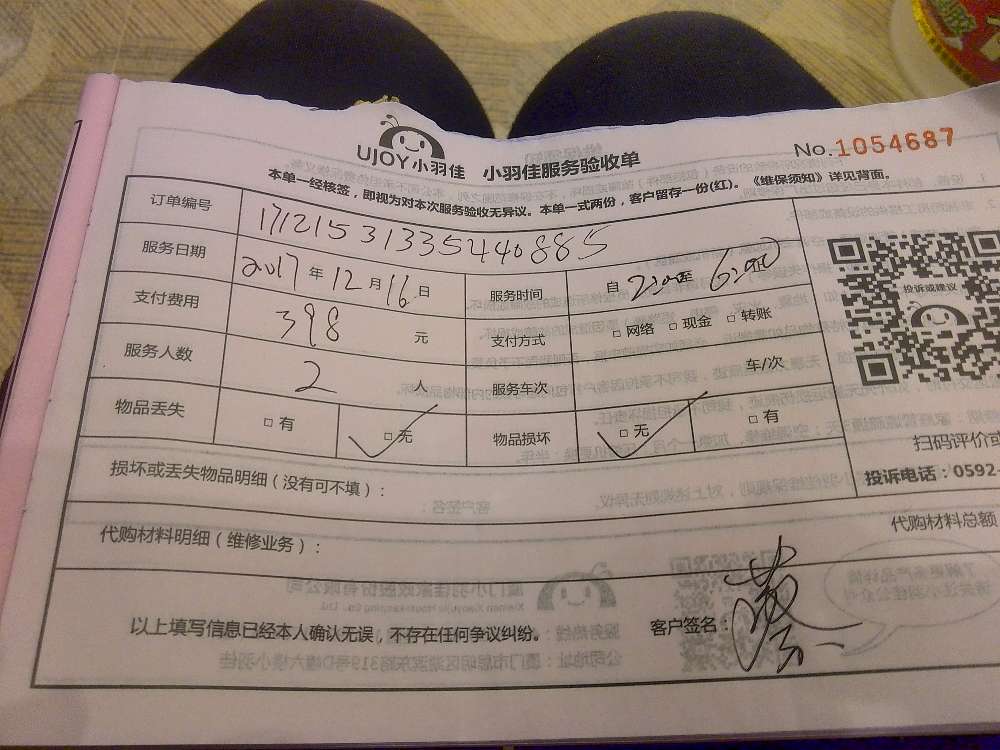 UJOY小羽佳 小羽佳服务验收单 No.1054687
本单一经核签，即视为对本次服务验收无异议。本单一式两份，客户留存一份(红)。《维保须知》详见背面。
订单编号 171215313354440885
服务日期 2017年12月16日 服务时间 自 至 止
支付费用 398 元 支付方式 □网络 □现金 □转账
服务人数 2 人 服务车次 车/次
物品丢失 □有 □无 物品损坏 □无 □有
投诉或建议
扫码评价或
投诉电话：0592-
损坏或丢失物品明细（没有可不填）：
代购材料明细（维修业务）： 代购材料总额
以上填写信息已经本人确认无误，不存在任何争议纠纷。 客户签名：